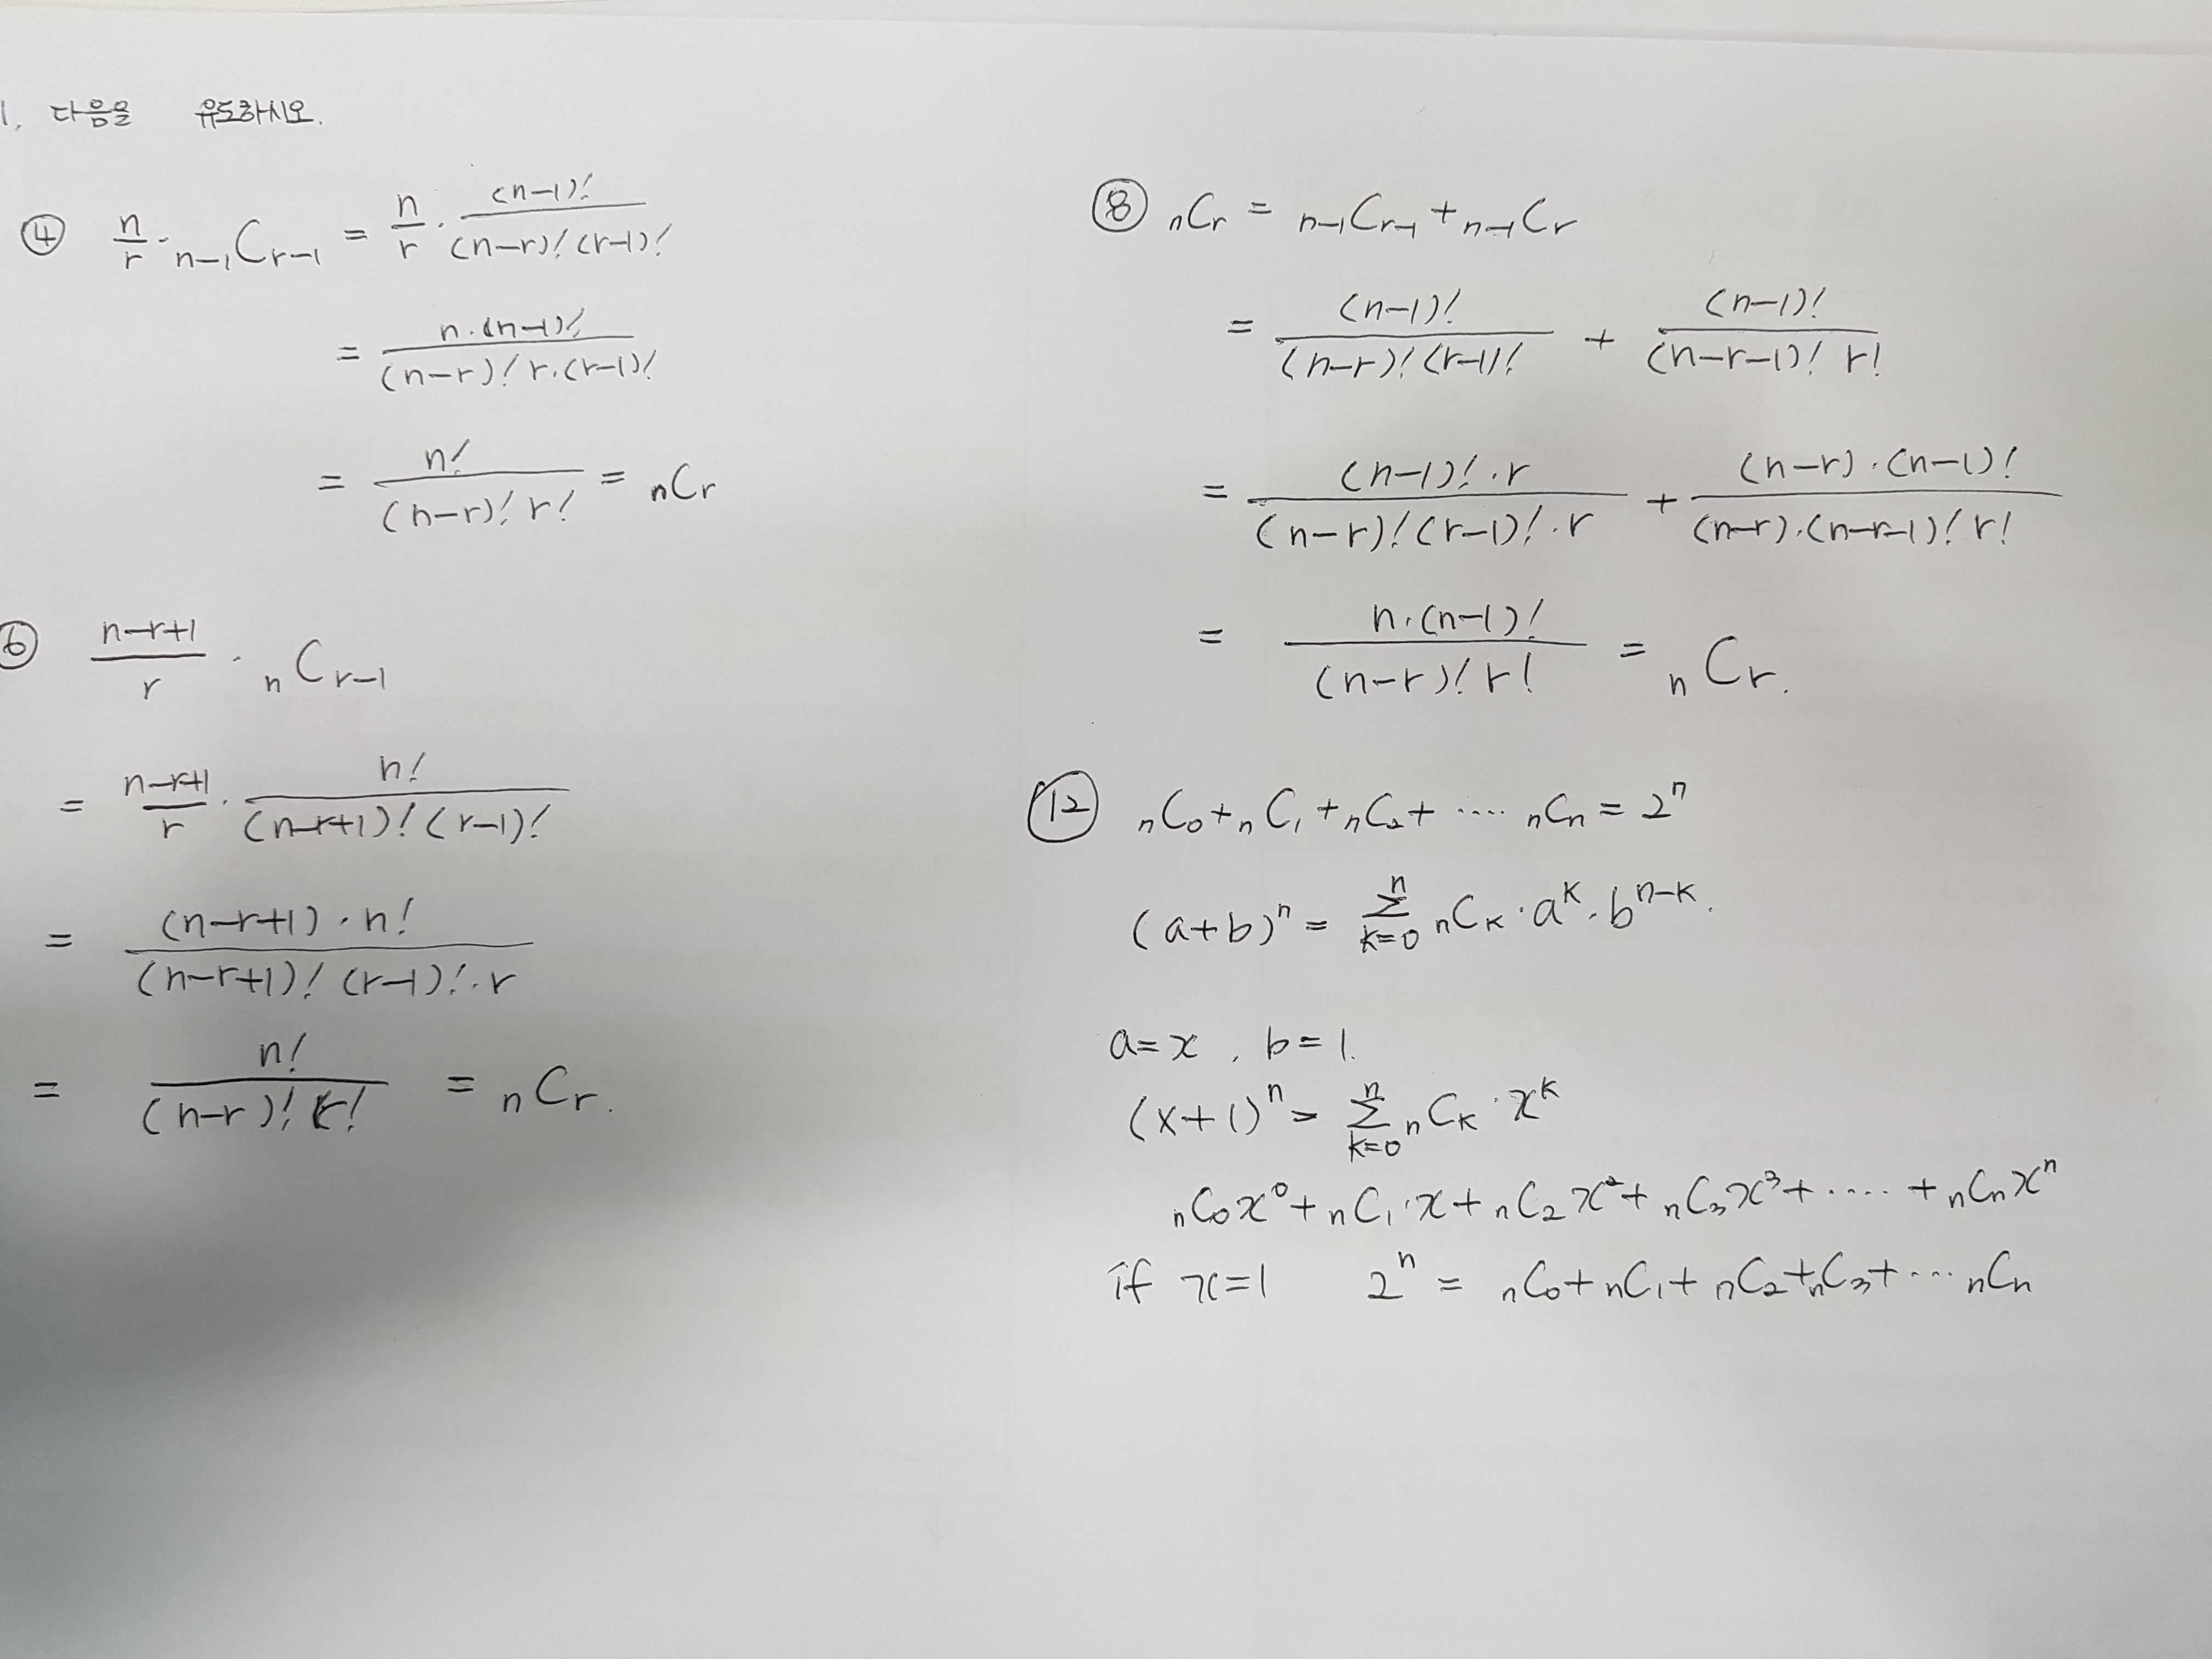 1. 다음을 유도하시오.
④ n/r · n-1Cr-1 = n/r · (n-1)!/(n-r)!(r-1)!
= n·(n-1)!/(n-r)!r·(r-1)!
= n!/(n-r)!r! = nCr
⑥ n-r+1/r · nCr-1
= n-r+1/r · n!/(n-r+1)!(r-1)!
= (n-r+1)·n!/(n-r+1)!(r-1)!·r
= n!/(n-r)!r! = nCr.
⑧ nCr = n-1Cr-1 + n-1Cr
= (n-1)!/(n-r)!(r-1)! + (n-1)!/(n-r-1)!r!
= (n-1)!·r/(n-r)!(r-1)!·r + (n-r)·(n-1)!/(n-r)·(n-r-1)!r!
= n·(n-1)!/(n-r)!r! = nCr.
⑫ nC0+nC1+nC2+.... nCn=2ⁿ
(a+b)ⁿ = Σ n k=0 nCk·aᵏ·bⁿ⁻ᵏ.
a=x, b=1.
(x+1)ⁿ = Σ n k=0 nCk·xᵏ
nC0x⁰+nC1·x+nC2x²+nC3x³+....+nCnxⁿ
if x=1 2ⁿ = nC0+nC1+nC2+nC3+...nCn